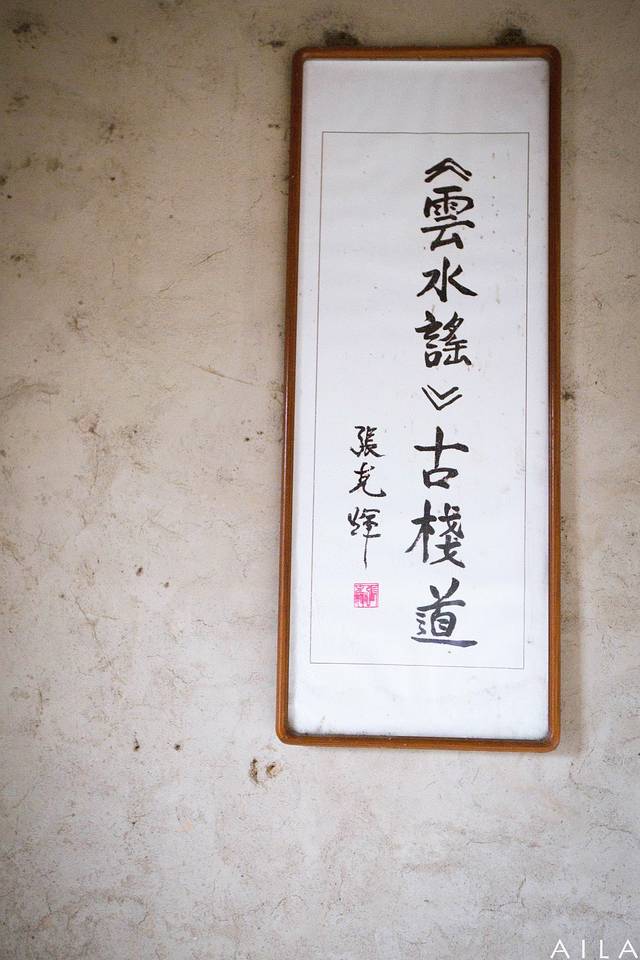 《雲水謠》古棧道
張克輝
AILA